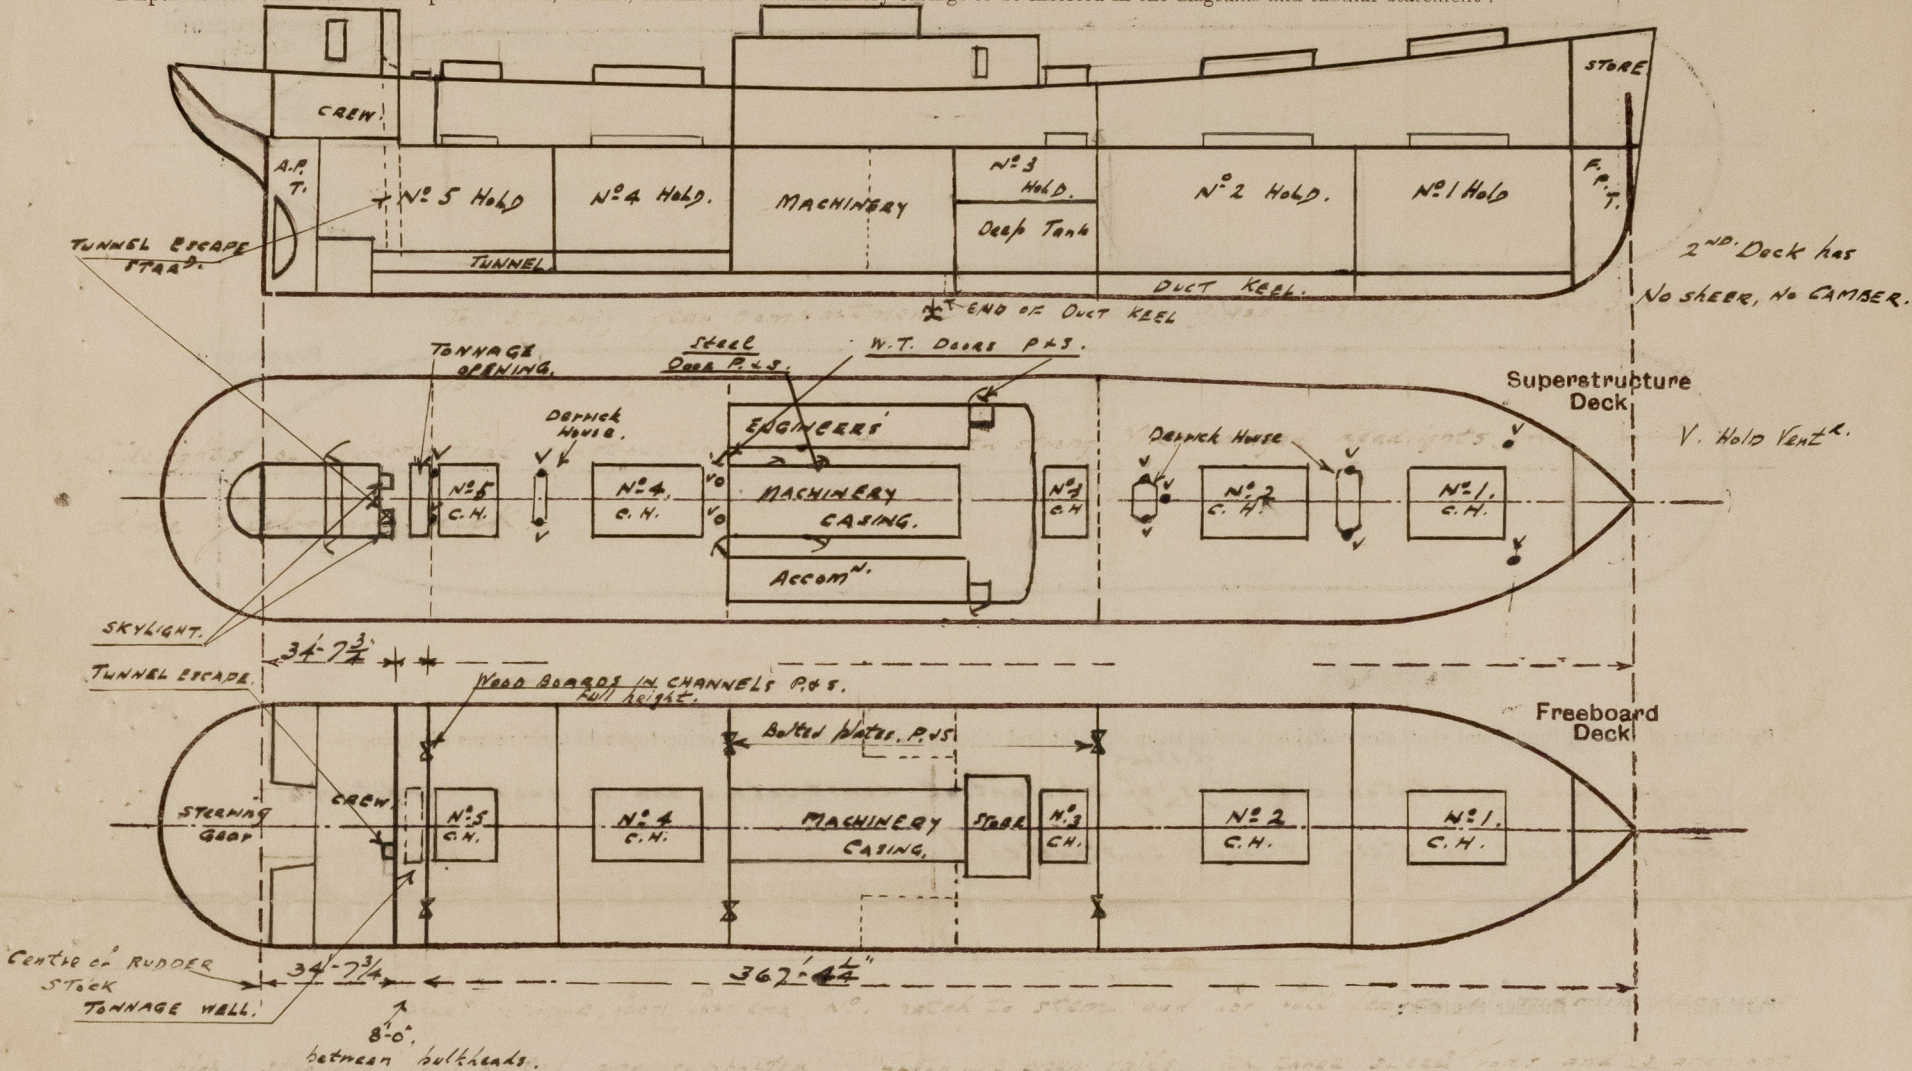 STORE
CREW.
A.P.
T.
Nº 5 HOLD
Nº 4 HOLD.
MACHINERY
Nº 3
HOLD.
Deep Tank
Nº 2 HOLD.
Nº 1 HOLD
F.
P.
T.
TUNNEL ESCAPE
STARD.
TUNNEL
DUCT KEEL.
END OF DUCT KEEL
2ND. Deck has
No sheer, No CAMBER.
TONNAGE
OPENING.
Steel
Door P.&S.
W.T. Doors P&S.
Superstructure
Deck
Derrick
House.
ENGINEERS'
Derrick House
V. Hold Ventr.
V
V
V
V
V
V
V
Nº 5
C.H.
Nº 4.
C.H.
VO
VO
MACHINERY
CASING.
Nº 3
C.H
V
Nº 2
C.H.
Nº 1.
C.H.
V
V
V
V
Accomn.
SKYLIGHT.
34'-7¾"
TUNNEL ESCAPE.
WOOD BOARDS IN CHANNELS P.&S.
Full height.
Freeboard
Deck
Bolted plates. P.&S.
STEERING
Gear
CREW.
Nº 5
C.H.
Nº 4
C.H.
MACHINERY
CASING.
STORE
Nº 3
CH.
Nº 2
C.H.
Nº 1.
C.H.
Centre of RUDDER
STOCK
34'-7¾
367'-4¼"
TONNAGE WELL.
8'-0".
between bulkheads.